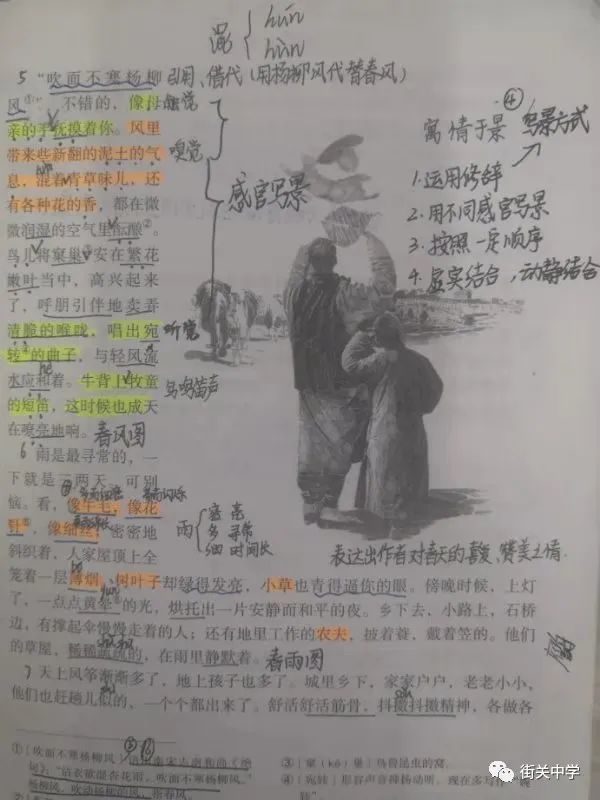 混 { hún
hùn
5 “吹面不寒杨柳
风①”，不错的，像母
亲的手抚摸着你。风里
带来些新翻的泥土的气
息，混着青草味儿，还
有各种花的香，都在微
微润湿的空气里酝酿②。
鸟儿将窠巢③安在繁花
嫩叶当中，高兴起来
了，呼朋引伴地卖弄
清脆的喉咙，唱出宛
转④的曲子，与轻风流
水应和着。牛背上牧童
的短笛，这时候也成天
在嘹亮地响。春风图
引用、借代（用杨柳风代替春风）
触觉
嗅觉
感官写景
听觉
鸟鸣笛声
④
寓情于景 写景方式
1.运用修辞
2.用不同感官写景
3.按照一定顺序
4.虚实结合，动静结合
6 雨是最寻常的，一
下就是三两天。可别
恼。看，像牛毛，像花
针，像细丝，密密地
斜织着，人家屋顶上全
笼着一层薄烟。树叶子却绿得发亮，小草也青得逼你的眼。傍晚时候，上灯
了，一点点黄晕的光，烘托出一片安静而和平的夜。乡下去，小路上，石桥
边，有撑起伞慢慢走着的人；还有地里工作的农夫，披着蓑，戴着笠的。他们
的草屋，稀稀疏疏的，在雨里静默着。春雨图
雨 { 密 亮
多 寻常
细 时间长
表达出作者对春天的喜爱、赞美之情.
7 天上风筝渐渐多了，地上孩子也多了。城里乡下，家家户户，老老小小，
他们也赶趟儿似的，一个个都出来了。舒活舒活筋骨，抖擞抖擞精神，各做各
①［吹面不寒杨柳风］
句：“沾衣欲湿杏花雨，吹面不寒杨柳风。”
杨柳风，吹动杨柳的风，指春风。
③［窠（kē）巢］鸟兽昆虫的窝。
④［宛转］形容声音抑扬动听。现在多写作“婉
转”。
街关中学